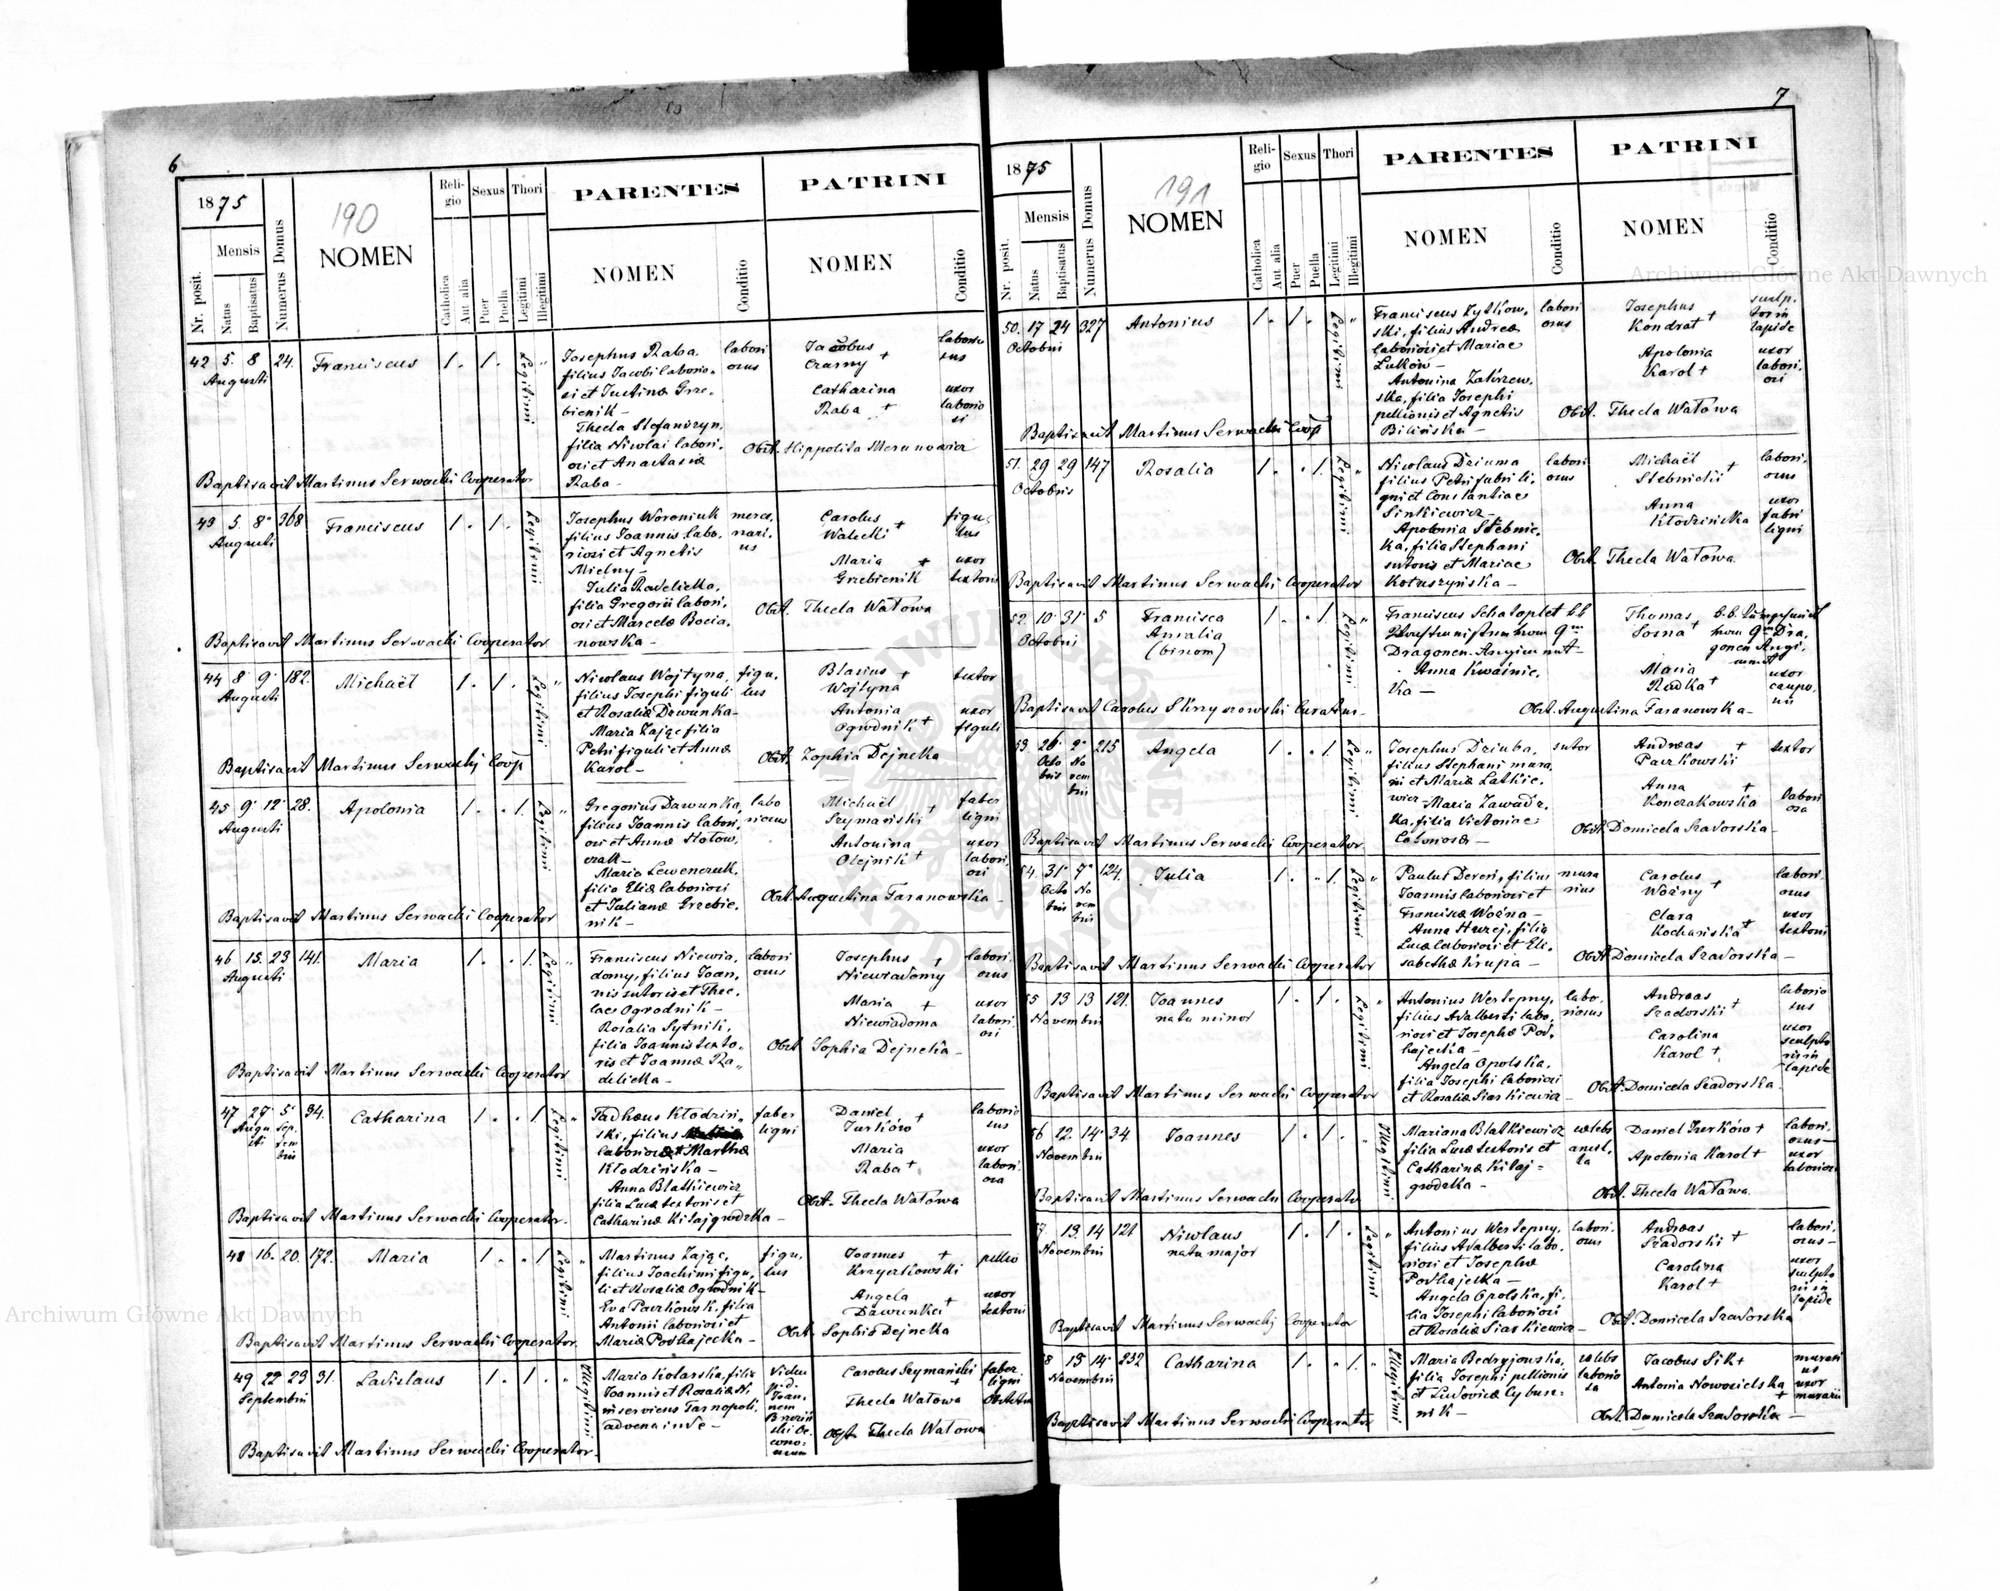 6
1875
190
Nr. posit.
Mensis
Natus
Baptisatus
Numerus Domus
NOMEN
Reli-
gio
Catholica
Aut alia
Sexus
Puer
Puella
Thori
Legitimi
Illegitimi
PARENTES
NOMEN
Conditio
PATRINI
NOMEN
Conditio
42 5. 8 24. Franciscus 1. 1. Legitimi
Augusti
Josephus Raba,
filius Jacobi laborio-
si et Justinæ Grze-
bienik -
Thecla Stefaniszyn,
filia Nicolai labori-
osi et Anastasiæ
Raba -
labori
osus
Jacobus
Czarny +
Catharina
Raba +
laborio
sus
uxor
laborio
si
Obst. Hippolita Merunowicz
Baptisavit Martinus Serwacki Cooperator
43 5. 8 368 Franciscus 1. 1. Legitimi
Augusti
Josephus Woroniuk
filius Joannis labo-
riosi et Agnetis
Mielny -
Julia Radelicka,
filia Gregorii labori-
osi et Marcelæ Bocia-
nowska -
merce-
nari-
us
Carolus
Walecki +
Maria +
Grzebienik
figu-
lus
uxor
textoris
Obst. Thecla Watowa
Baptisavit Martinus Serwacki Cooperator
44 8 9 182. Michaël 1. 1. Legitimi
Augusti
Nicolaus Wojtyna,
filius Josephi figuli
et Rosaliæ Dzwunka -
Maria Zając filia
Petri figuli et Annæ
Karol -
figu-
lus
Blasius
Wojtyna +
Antonia
Ogrodnik +
textor
uxor
figuli
Obst. Zophia Dejneka
Baptisavit Martinus Serwacki Coop
45 9 12 28. Apolonia 1. . 1. Legitimi
Augusti
Gregorius Dawunka,
filius Joannis labori-
osi et Annæ Hołow-
czak -
Maria Lewenczuk,
filia Eliæ laboriosi
et Julianæ Grzebie-
nik -
labo
riosus
Michaël
Szymański +
Antonina
Olejnik +
faber
ligni
uxor
labori-
osi
Obst. Augustina Taranowska -
Baptisavit Martinus Serwacki Cooperator
46 15. 23 141. Maria 1. . 1. Legitimi
Augusti
Franciscus Niewia-
domy, filius Joan-
nis sutoris et Thec-
læ Ogrodnik -
Rosalia Sytnik,
filia Joannis texto-
ris et Joannæ Ra-
delicka -
labori
osus
Josephus +
Niewiadomy
Maria +
Niewiadoma
labori-
osus
uxor
labori-
osi
Obst. Sophia Dejneka -
Baptisavit Martinus Serwacki Cooperator
47 29. 5 34. Catharina 1. . 1. Legitimi
Augu Sep-
sti tem
bris
Tadhæus Kłodziń-
ski, filius
laboriosæ Marthæ
Kłodzińska -
Anna Blatkiewicz
filia Lucæ textoris et
Catharinæ Kitajgrodzka -
faber
ligni
Daniel +
Turków
Maria
Raba +
laborio
sus
uxor
labori-
osa
Obst. Thecla Watowa
Baptisavit Martinus Serwacki Cooperator.
48 16. 20. 172. Maria 1. . 1 Legitimi
Martinus Zając,
filius Joachimi figu-
li et Rosaliæ Ogrodnik -
Eva Paczkowsk, filia
Antonii laboriosi et
Mariæ Podhajecka -
figu-
lus
Joannes +
Krzyczkowski
Angela
Dawunka +
pellio
uxor
textoris
Obst. Sophia Dejneka
Baptisavit Martinus Serwacki Cooperator.
49 22 23 31. Ladislaus 1. 1. Illegitimi
Septembris
Maria Kolarska, filia
Joannis et Rosaliæ N.
inserviens Tarnopoli,
advena inde -
Carolus Szymański
Thecla Watowa
faber
ligni
Obstetrix
Obst. Thecla Watowa
Baptisavit Martinus Serwacki Cooperator.
7
1875
191
Nr. posit.
Mensis
Natus
Baptisatus
Numerus Domus
NOMEN
Reli-
gio
Catholica
Aut alia
Sexus
Puer
Puella
Thori
Legitimi
Illegitimi
PARENTES
NOMEN
Conditio
PATRINI
NOMEN
Conditio
50. 17 24 327 Antonius 1. 1. Legitimi
Octobris
Franciscus Zytkow-
ski, filius Andreæ
laboriosi et Mariae
Lutkow -
Antonina Zakrzew-
ska, filia Josephi
pellionis et Agnetis
Bilińska -
labori
osus
Josephus
Kondrat +
Apolonia
Karol +
sculp-
tor in
lapide
uxor
labori-
osi
Obst. Thecla Watowa
Baptisavit Martinus Serwacki Coop
51. 29 29 147 Rosalia 1. . 1. Legitimi
Octobris
Nicolaus Dziuma
filius Petri fabri li-
gni et Constantiae
Sinkiewicz -
Apolonia Stebnic-
ka, filia Stephani
sutoris et Mariae
Kotuszyńska -
labori
osus
Michaël
Stebnicki +
Anna
Kłodzińska +
labori-
osus
uxor
fabri
ligni
Obst. Thecla Watowa.
Baptisavit Martinus Serwacki Cooperator
52. 10 31 5 Francisca 1. . 1. Legitimi
Octobris
Amalia
(binom)
Anna Kwaśnic-
ka -
Thomas
Sosna +
Maria
Rudka +
uxor
caupo-
nis
Obst. Augustina Taranowska -
Baptisavit Carolus Skrzyszowski Curatus -
53. 26 2 215 Angela 1. . 1. Legitimi
Octo No
bris vem
bris
Josephus Dziuba,
filius Stephani mura-
rii et Mariæ Latkie-
wicz - Maria Zawadz-
ka, filia Victoriae
laboriosæ -
sutor
Andreas +
Paczkowski
Anna +
Konczakowska
textor
labori
osa
Obst. Domicela Szadorska -
Baptisavit Martinus Serwacki Cooperator.
54. 31 7 124. Julia 1. . 1. Legitimi
Octo No
bris vem
bris
Paulus Deren, filius
Joannis laboriosi et
Franciscæ Woźna -
Anna Huzej, filia
Lucæ laboriosi et Eli-
sabethæ Krupa -
mura
rius
Carolus
Woźny +
Clara
Kochańska +
labori-
osus
uxor
textoris
Obst. Domicela Szadorska -
Baptisavit Martinus Serwacki Cooperator
55 13 13 121. Joannes 1. 1. Legitimi
Novembris
natu minor
Antonius Westepny,
filius Adalberti labo-
riosi et Josephæ Pod-
hajecka -
Angela Opolska,
filia Josephi laboriosi
et Rosaliæ Siarkiewicz -
labo-
riosus
Andreas
Szadorski +
Carolina
Karol +
laborio
sus
uxor
sculpto
ris in
lapide
Obst. Domicela Szadorska.
Baptisavit Martinus Serwacki Cooperator
56 12. 14 34 Joannes 1. 1. Illegitimi
Novembris
Mariana Blatkiewicz
filia Lucæ textoris et
Catharinæ Kitaj-
grodzka -
cælebs
ancil-
la
Daniel Turków +
Apolonia Karol +
labori-
osus -
uxor
laboriosi
Obst. Thecla Watowa.
Baptisavit Martinus Serwacki Cooperator
57 13. 14 121 Nicolaus 1. 1. Legitimi
Novembris
natu major
Antonius Westepny,
filius Adalberti labo-
riosi et Josephæ
Podhajecka -
Angela Opolska, fi-
lia Josephi laboriosi
et Rosaliæ Siarkiewicz -
labori-
osus
Andreas
Szadorski +
Carolina
Karol +
labori-
osus -
uxor
sculpto
ris in
lapide
Obst. Domicela Szadorska
Baptisavit Martinus Serwacki Cooperator
58 13 14 232 Catharina 1. . 1. Illegitimi
Novembris
Maria Bedryjowska,
filia Josephi pellionis
et Ludovicæ Cybuse-
nik -
cælebs
laborio
sa
Jacobus Sik +
Antonia Nowosielska +
murari
us
uxor
murarii
Obst. Domicela Szadorska -
Baptisavit Martinus Serwacki Cooperator
Archiwum Główne Akt Dawnych
Archiwum Główne Akt Dawnych
ARCHIWUM GŁÓWNE AKT DAWNYCH